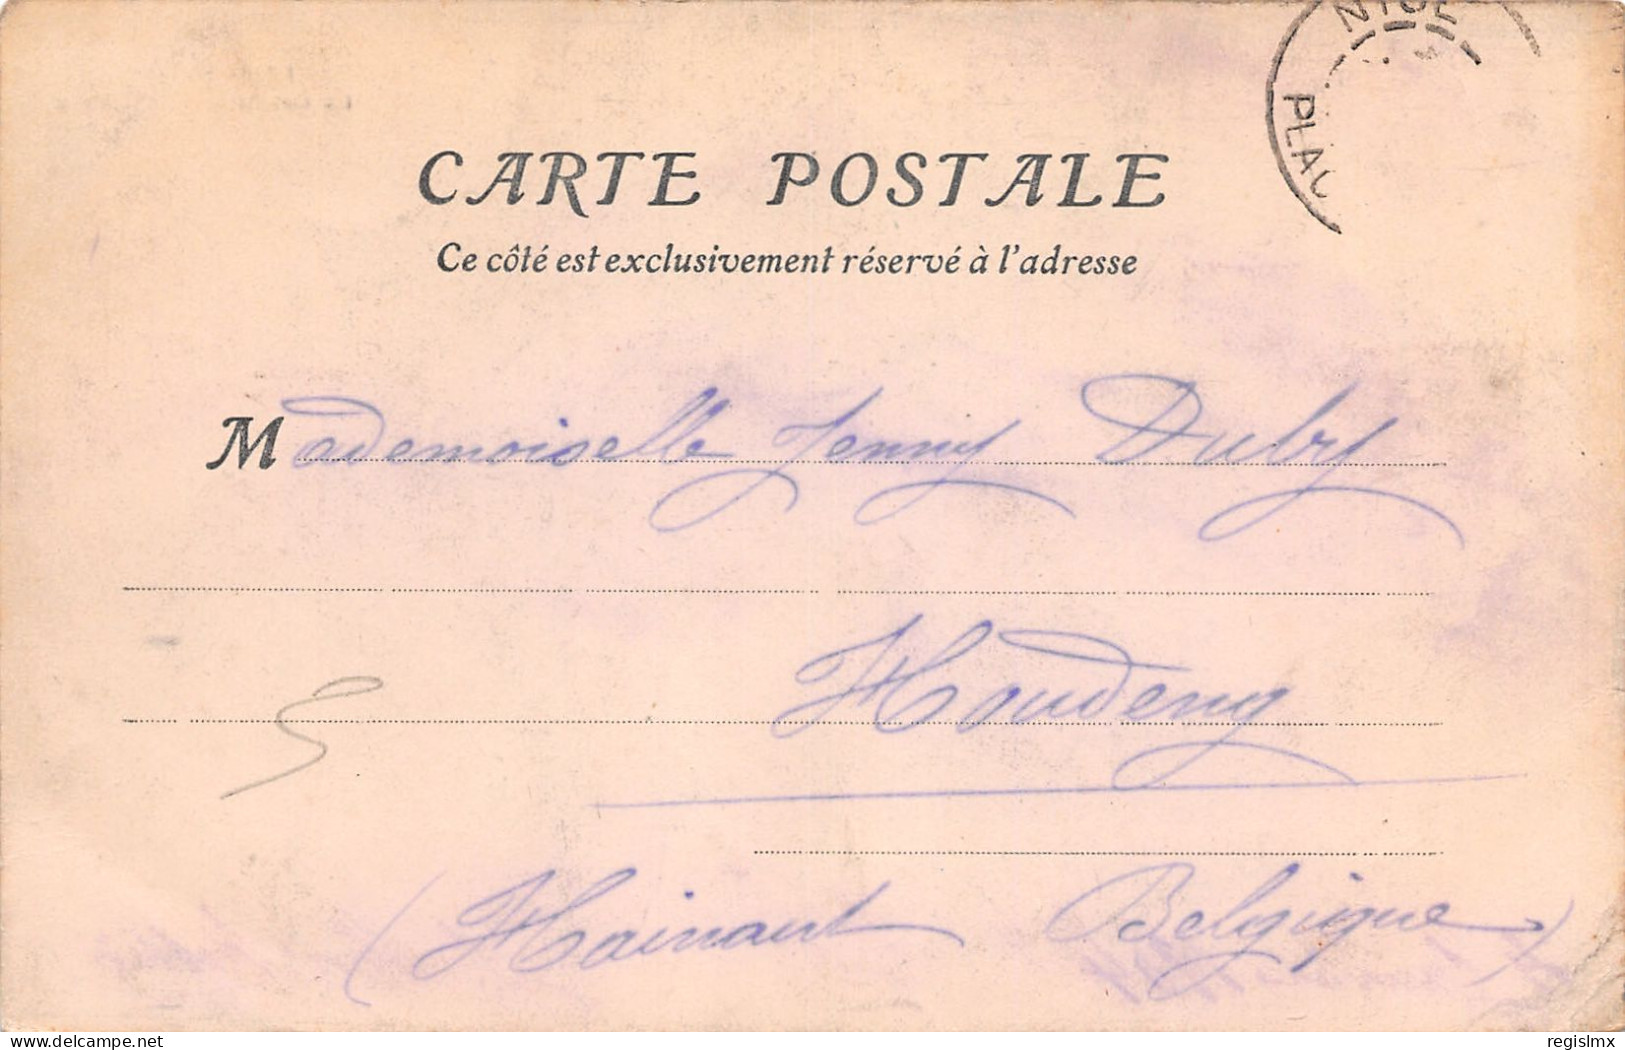 NICE
PLAC
CARTE POSTALE
Ce côté est exclusivement réservé à l'adresse
Mademoiselle Jenny Dubry
Houdeng
(Hainaut Belgique)
delcampe.net
regislmx